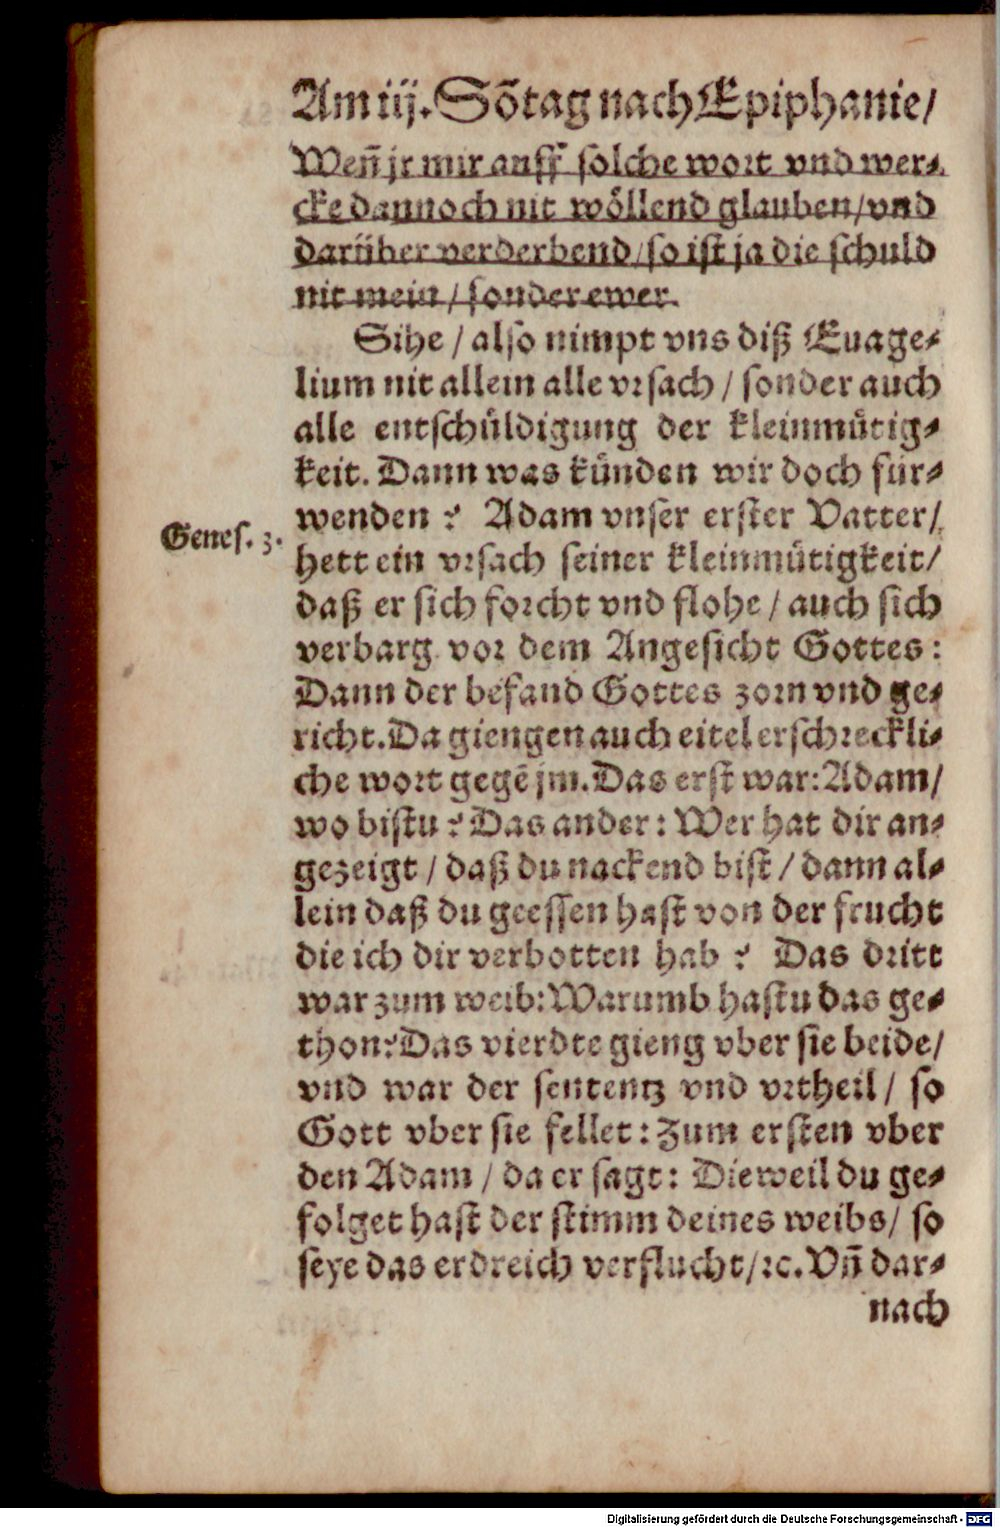 Am iij. Sõtag nach Epiphanie/
Weñ jr mir auff solche wort vnd wer-
cke dannoch nit wöllend glauben/vnd
darüber verderbend/so ist ja die schuld
nit mein/sonder ewer.
Sihe/also nimpt vns diß Euage-
lium nit allein alle vrsach/sonder auch
alle entschüldigung der kleinmütig-
keit. Dann was künden wir doch für-
wenden? Adam vnser erster Vatter/
Genes. 3.
hett ein vrsach seiner kleinmütigkeit/
daß er sich forcht vnd flohe/auch sich
verbarg vor dem Angesicht Gottes:
Dann der befand Gottes zorn vnd ge-
richt. Da giengen auch eitel erschreckli-
che wort gegẽ jm. Das erst war: Adam/
wo bistu? Das ander: Wer hat dir an-
gezeigt/daß du nackend bist/dann al-
lein daß du geessen hast von der frucht
die ich dir verbotten hab? Das dritt
war zum weib: Warumb hastu das ge-
thon? Das vierdte gieng vber sie beide/
vnd war der sententz vnd vrtheil/ so
Gott vber sie fellet: Zum ersten vber
den Adam/da er sagt: Dieweil du ge-
folget hast der stimm deines weibs/ so
seye das erdreich verflucht/ꝛc. Vñ dar-
nach
Digitalisierung gefördert durch die Deutsche Forschungsgemeinschaft - DFG